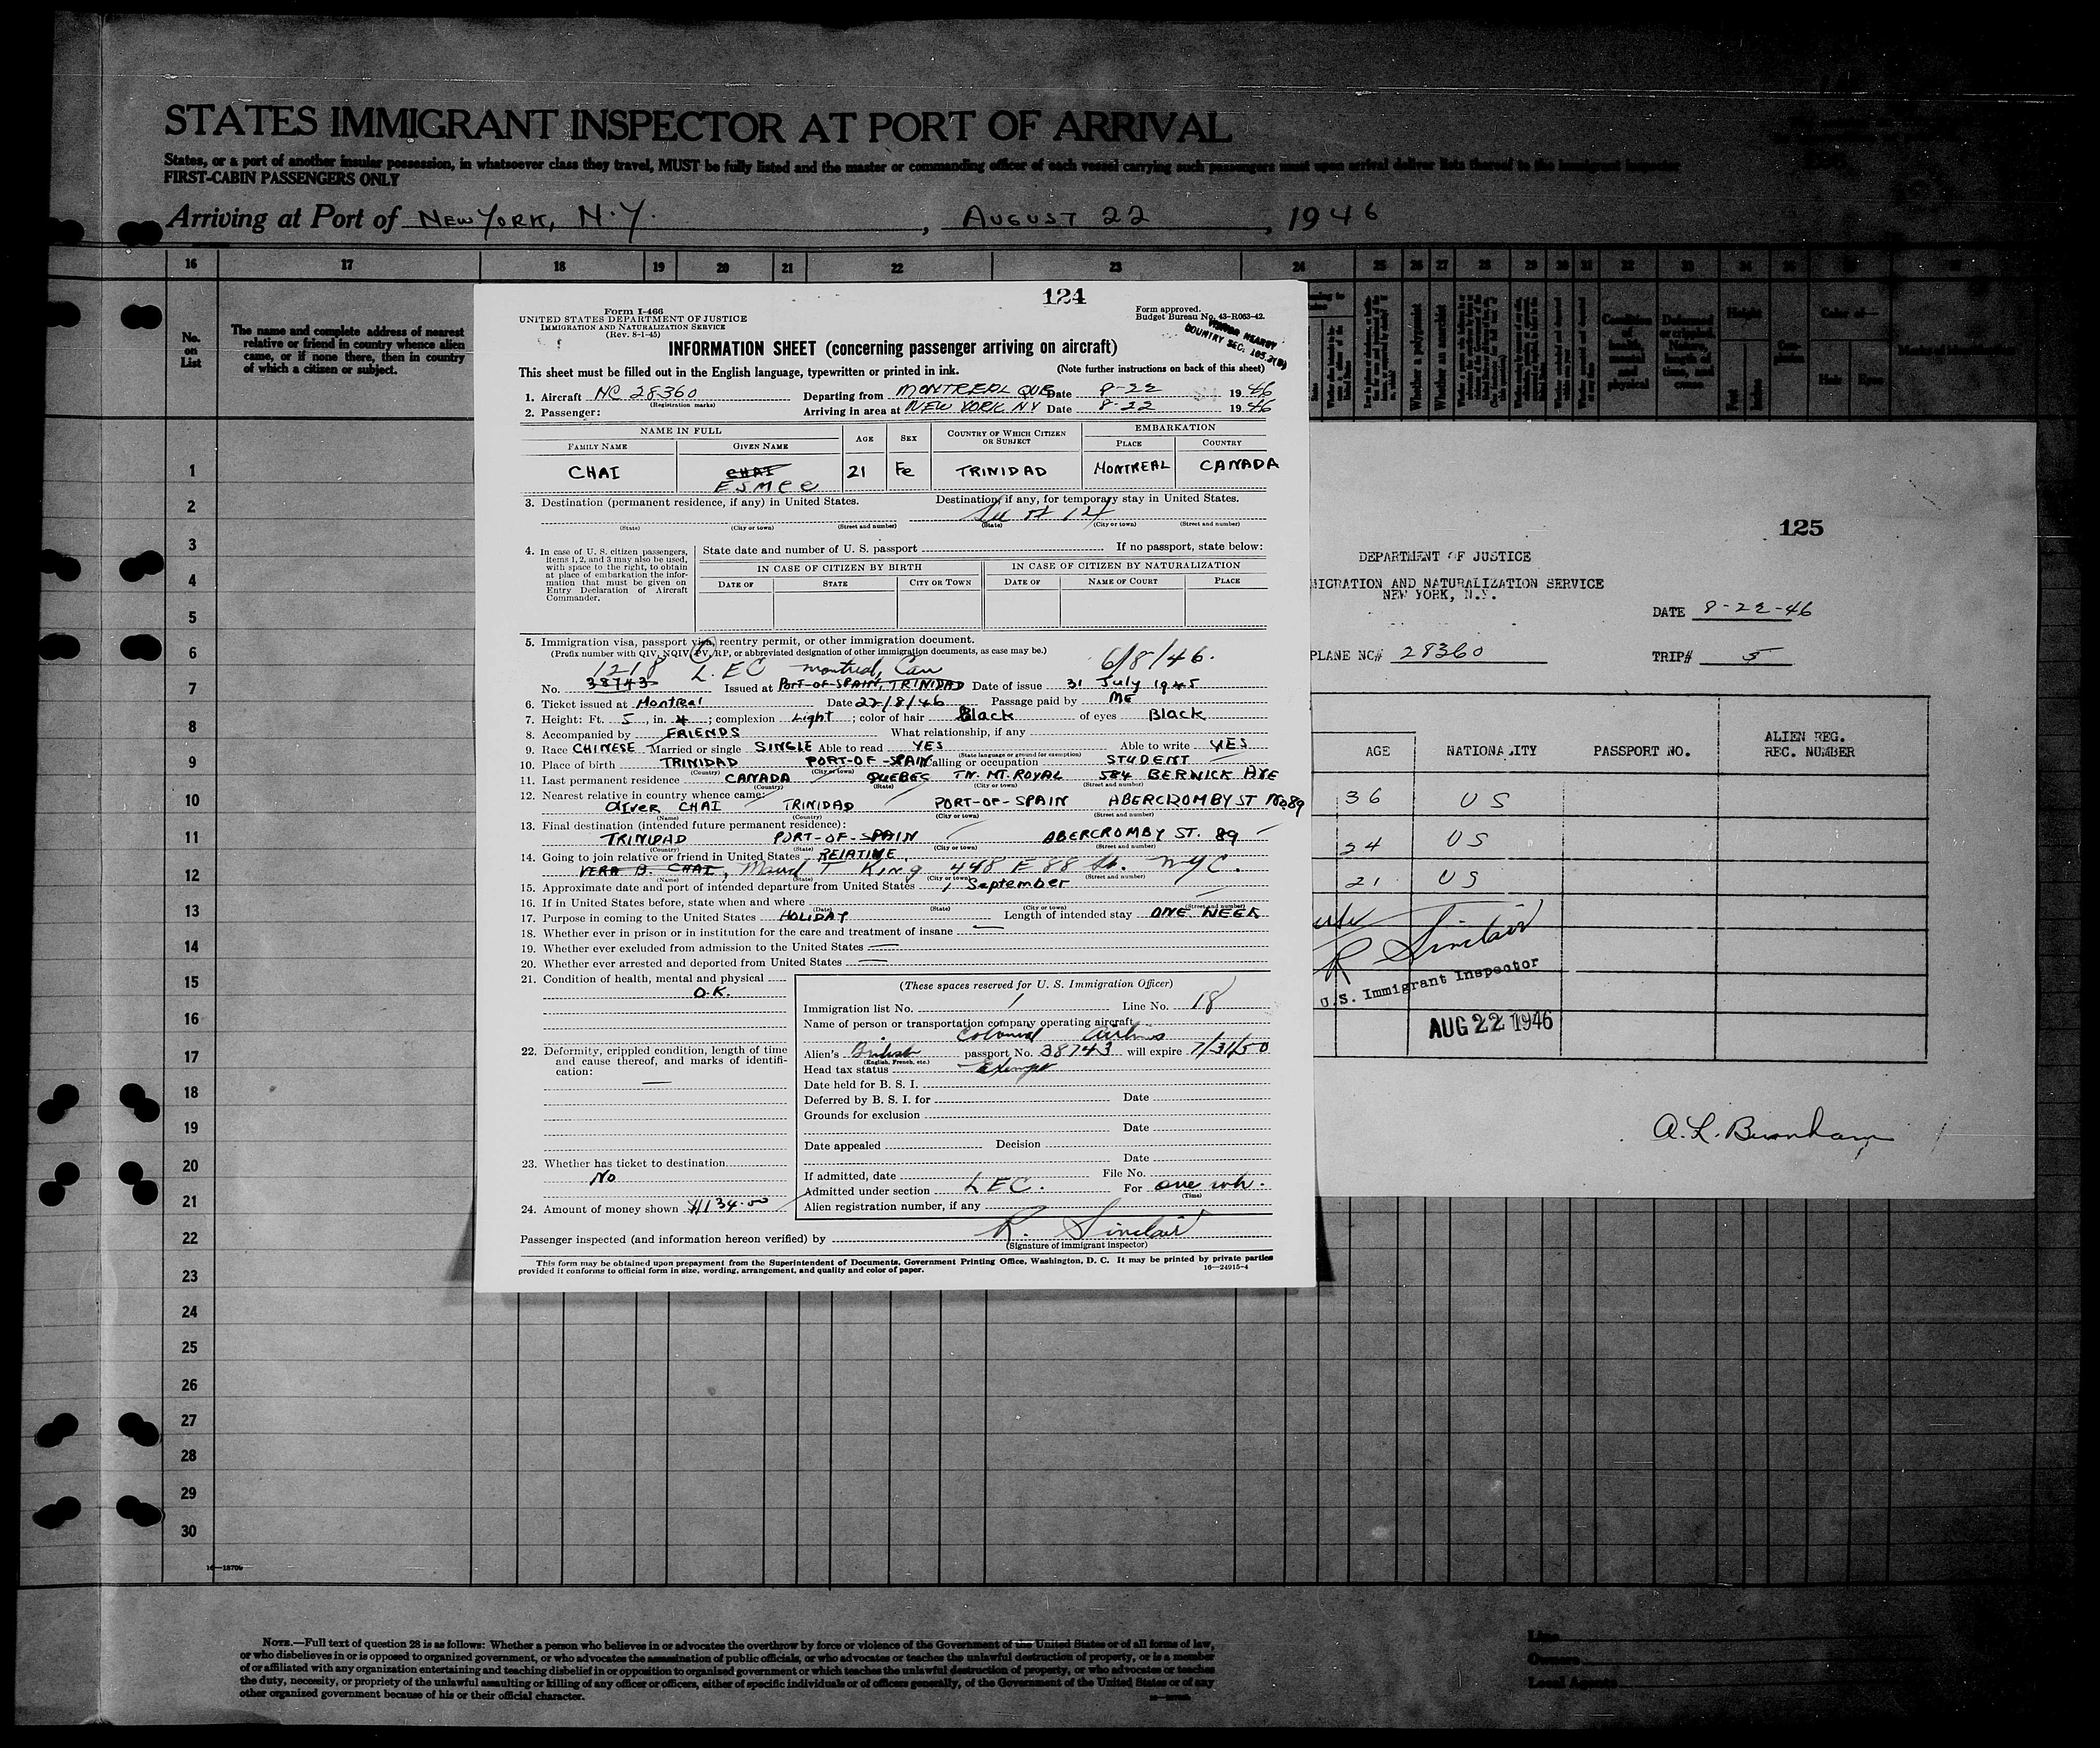 STATES IMMIGRANT INSPECTOR AT PORT OF ARRIVAL
States, or a port of another insular possession, in whatsoever class they travel, MUST be fully listed and the master or commanding officer of each vessel carrying such passengers must upon arrival deliver lists thereof to the immigrant inspector
FIRST-CABIN PASSENGERS ONLY
Arriving at Port of NEW YORK, N.Y. , AUGUST 22 , 1946
16 17 18 19 20 21 22 23 24 25 26 27 28 29 30 31 32 33 34
No. on List
The name and complete address of nearest
relative or friend in country whence alien
came, or if none there, then in country
of which a citizen or subject.
Whether a polygamist
Whether an anarchist
Height
Feet
Inches
Hair
Eyes
1
2
3
4
5
6
7
8
9
10
11
12
13
14
15
16
17
18
19
20
21
22
23
24
25
26
27
28
29
30
124
Form I-466
UNITED STATES DEPARTMENT OF JUSTICE
IMMIGRATION AND NATURALIZATION SERVICE
(Rev. 8-1-45)
Form approved.
Budget Bureau No. 43-R063-42.
COUNTRY SEC.
INFORMATION SHEET (concerning passenger arriving on aircraft)
This sheet must be filled out in the English language, typewritten or printed in ink. (Note further instructions on back of this sheet)
1. Aircraft NC 28360 Departing from MONTREAL QUE Date 8-22 1946
(Registration marks)
2. Passenger: Arriving in area at NEW YORK NY Date 8-22 1946
NAME IN FULL AGE SEX COUNTRY OF WHICH CITIZEN OR SUBJECT EMBARKATION
FAMILY NAME GIVEN NAME PLACE COUNTRY
CHAI CHAI 21 Fe TRINIDAD MONTREAL CANADA
ESMEE
3. Destination (permanent residence, if any) in United States. Destination, if any, for temporary stay in United States.
See # 14
(State) (City or town) (Street and number) (State) (City or town) (Street and number)
4. In case of U. S. citizen passengers,
items 1, 2, and 3 may also be used,
with space to the right, to obtain
at place of embarkation the infor-
mation that must be given on
Entry Declaration of Aircraft
Commander.
State date and number of U. S. passport If no passport, state below:
IN CASE OF CITIZEN BY BIRTH IN CASE OF CITIZEN BY NATURALIZATION
DATE OF STATE CITY OR TOWN DATE OF NAME OF COURT PLACE
5. Immigration visa, passport visa, reentry permit, or other immigration document.
(Prefix number with QIV, NQIV, PV, RP, or abbreviated designation of other immigration documents, as case may be.)
1218 L. EC Montreal, Can 6/8/46.
No. 38743 Issued at PORT-OF-SPAIN, TRINIDAD Date of issue 31 July 1945
6. Ticket issued at Montreal Date 22/8/46 Passage paid by ME
7. Height: Ft. 5, in. 4; complexion Light; color of hair Black of eyes Black
8. Accompanied by FRIENDS What relationship, if any
9. Race CHINESE Married or single SINGLE Able to read YES Able to write YES
(State language or ground for exemption)
10. Place of birth TRINIDAD PORT-OF-SPAIN Calling or occupation STUDENT
(Country) (City or town)
11. Last permanent residence CANADA QUEBEC TN. MT. ROYAL 584 BERWICK AVE
(Country) (State) (City or town) (Street and number)
12. Nearest relative in country whence came:
Oliver CHAI TRINIDAD PORT-OF-SPAIN ABERCROMBY ST No 89
(Name) (Country) (City or town) (Street and number)
13. Final destination (intended future permanent residence):
TRINIDAD PORT-OF-SPAIN ABERCROMBY ST. 89
(Country) (State) (City or town) (Street and number)
14. Going to join relative or friend in United States RELATIVE,
VERA B. CHAI, Maud T King 448 E 88 St. NYC.
(Name) (State) (City or town) (Street and number)
15. Approximate date and port of intended departure from United States 1 September
16. If in United States before, state when and where
(Date) (State) (City or town) (Street and number)
17. Purpose in coming to the United States HOLIDAY Length of intended stay ONE WEEK
18. Whether ever in prison or in institution for the care and treatment of insane
19. Whether ever excluded from admission to the United States
20. Whether ever arrested and deported from United States
21. Condition of health, mental and physical
O.K.
22. Deformity, crippled condition, length of time
and cause thereof, and marks of identifi-
cation:
23. Whether has ticket to destination
No
24. Amount of money shown $134.50
(These spaces reserved for U. S. Immigration Officer)
Immigration list No. 1 Line No. 18
Name of person or transportation company operating aircraft
Colonial Airlines
Alien's British passport No. 38743 will expire 7/31/50
(English, French, etc.)
Head tax status Exempt
Date held for B. S. I.
Deferred by B. S. I. for Date
Grounds for exclusion
Date
Date appealed Decision
Date
If admitted, date File No.
Admitted under section L E C. For one wk.
(Time)
Alien registration number, if any
Passenger inspected (and information hereon verified) by R. Sinclair
(Signature of immigrant inspector)
This form may be obtained upon prepayment from the Superintendent of Documents, Government Printing Office, Washington, D. C. It may be printed by private parties
provided it conforms to official form in size, wording, arrangement, and quality and color of paper. 16—24915-4
125
DEPARTMENT OF JUSTICE
MIGRATION AND NATURALIZATION SERVICE
NEW YORK, N.Y.
DATE 8-22-46
PLANE NC# 28360 TRIP# 5
AGE NATIONALITY PASSPORT NO. ALIEN REG.
REC. NUMBER
36 US
24 US
21 US
R Sinclair
U.S. Immigrant Inspector
AUG 22 1946
A. L. Burnham
NOTE.—Full text of question 28 is as follows: Whether a person who believes in or advocates the overthrow by force or violence of the Government of the United States or of all forms of law,
or who disbelieves in or is opposed to organized government, or who advocates the assassination of public officials, or who advocates or teaches the unlawful destruction of property, or is a member
of or affiliated with any organization entertaining and teaching disbelief in or opposition to organized government or which teaches the unlawful destruction of property, or who advocates or teaches
the duty, necessity, or propriety of the unlawful assaulting or killing of any officer or officers, either of specific individuals or of officers generally, of the Government of the United States or of any
other organized government because of his or their official character.
Line
Owners
Local Agents